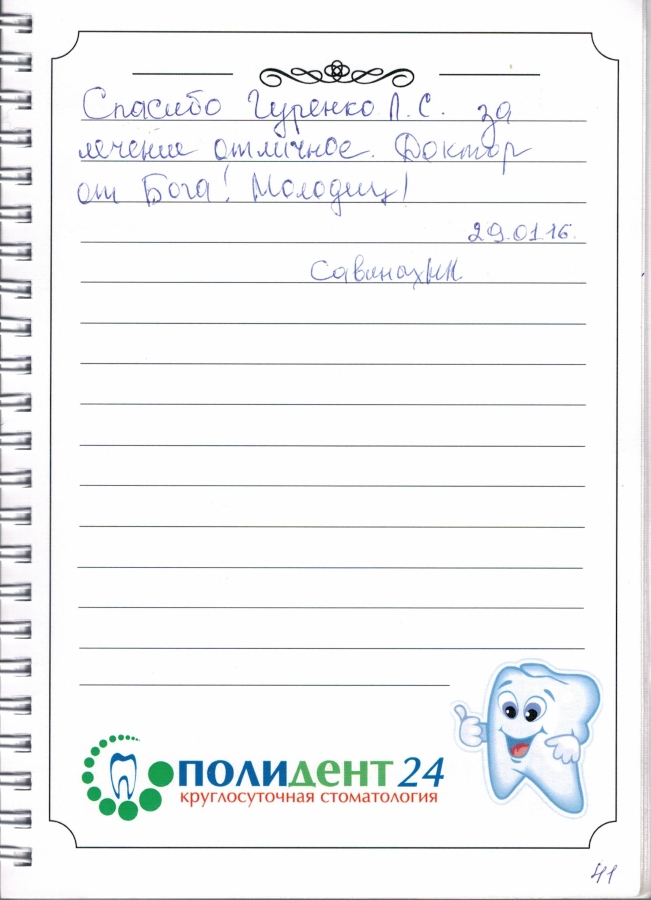 Спасибо Гуренко Л.С. за
лечение отличное. Доктор
от Бога! Молодец!
29.01.16.
ПОЛИДЕНТ 24
круглосуточная стоматология
41